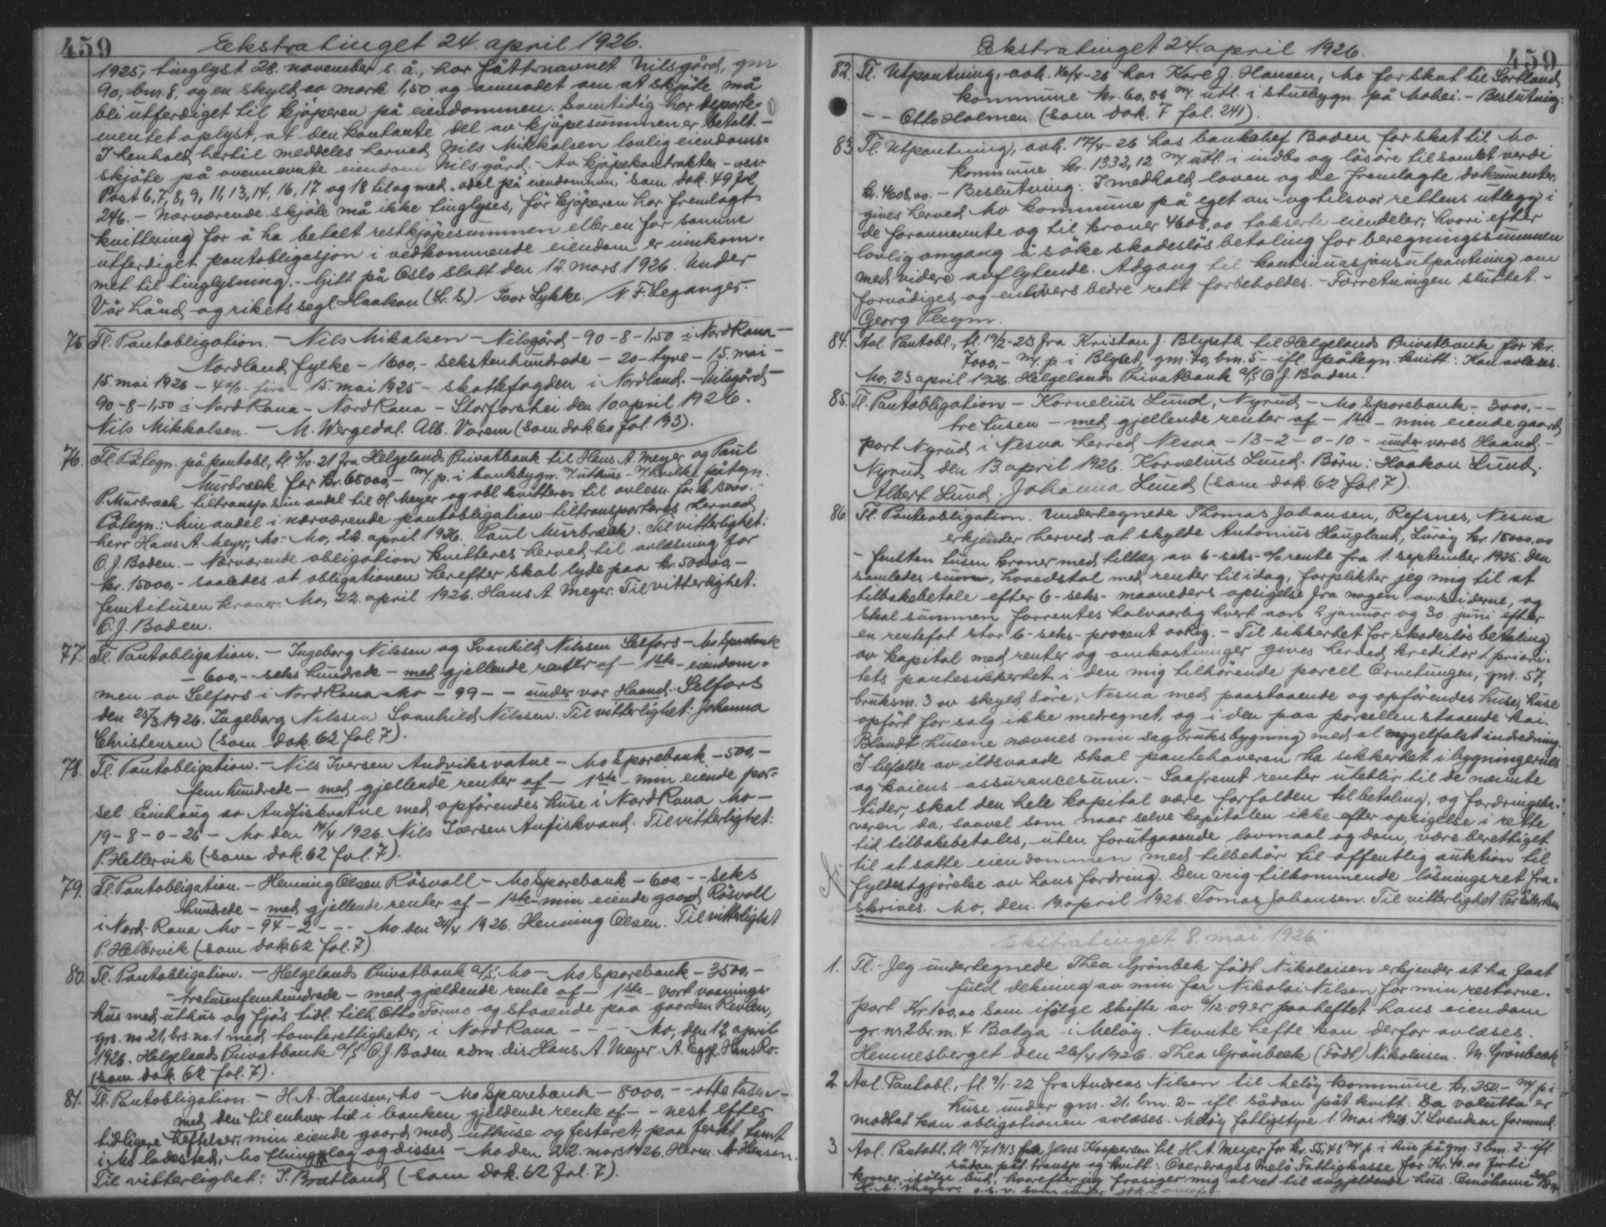 459
Ekstratinget 24. april 1926.
1925, tinglyst 28. november s. å., har fått navnet Nilsgård, gnr
90, bnr. 8, og en skyld av mark 1,50 og anmodet om at skjöte må
bli utferdiget til kjöperen på eiendommen. Samtidig har departe-
mentet oplyst, at den kontante del av kjöpesummen er betalt.-
I henhold hertil meddeles herved Nils Mikkalsen lovlig eiendoms-
skjöte på ovennevnte eiendom Nilsgård.- Av kjöpekontrakten - osv
Post 6, 7, 8, 9, 11, 13, 14, 16, 17 og 18 til og med "odel på eiendommen", som dok. 49 fol.
246. - Nærværende skjöte må ikke tinglyses, för kjöperen har fremlagt
kvittering for å ha betalt restkjöpesummen eller en for samme
utferdiget pantobligasjon i vedkommende eiendom er innkom-
met til tinglysning. - Gitt på Oslo slott den 12. mars 1926. Under
Vår hånd og rikets segl. Haakon (L. S.) Ivar Lykke. / N. F. Leganger.
75. Tl. Pantobligation. - Nils Mikalsen - Nilsgård - 90 - 8 - 1,50 i Nord Rana -
Nordland fylke - 1600,- sekstenhundrede - 20 - tyve - 15. mai -
15. mai 1926 - 4 % - fire - 15. mai 1925 - skattefogden i Nordland. - Nilsgård -
90 - 8 - 1,50 i Nord Rana - Nord Rana - Storforshei den 10 april 1926.
Nils Mikkalsen. - M. Wergedal. Alb. Varem (som dok. 60 fol. 193).
76. Tl. Påtegn. på pantobl., tl. 3/10-21 fra Helgelands Privatbank til Hans A. Meyer og Paul
Murbræck for kr. 65000,- m/ p. i bankbygn. m/ uthus - påtegn.
P. Murbræck transp. sin andel til H. Meyer og obl. kvitteres til avlesn. for kr. 15000.-
Påtegn.: Min andel i nærværende pantobligation tiltransporteres herved
herr Hans A. Meyer, Mo. Mo, 22. april 1926. Paul Murbræck. Til vitterlighet:
O. J. Baden. - Nærværende obligation kvitteres herved til avlæsning for
kr. 15000,- saaledes at obligationen herefter skal lyde paa kr. 50000,-
femtitusen kroner. Mo, 22. april 1926. Hans A Meyer. Til vitterlighet:
O. J. Baden.
77. Tl. Pantobligation. - Ingeborg Nilssen og Svanhild Nilssen Selfors - Mo Sparebank
- 600,- - seks hundrede - med gjellende renter af - 1ste - eiendom-
men av Selfors i Nord Rana Mo - 99 - - under vor Haand. Selfors
den 25/3 1926. Ingeborg Nilssen Svanhild Nilssen. Til vitterlighet: Johanna
Christensen (som dok. 62 fol. 7).
78. Tl. Pantobligation. - Nils Iversen Andviksvatne - Mo Sparebank - 500,-
femhundrede - med gjellende renter af - 1ste - min eiende par-
sel Einhaug av Andfiskvatne med opförendes huse i Nord Rana Mo -
19 - 8 - 0 - 26 - Mo den 14/4 1926. Nils Iversen Anfiskvand. Til vitterlighet:
P. Hellervik (som dok. 62 fol. 7).
79. Tl. Pantobligation. - Henning Olsen Rösvoll - Mo Sparebank - 600,- - seks
hundrede - med gjellende renter af - 1ste - min eiende gaard Rösvoll
i Nord-Rana Mo - 94 - 2 - - - Mo den 24/4 1926. Henning Olsen. Til vitterlighet
P. Hellervik (som dok. 62 fol. 7).
80. Tl. Pantobligation. - Helgelands Privatbank A/S, Mo - Mo Sparebank - 3500,-
- tretusenfemhundrede - med gjeldende rente af - 1ste - vort vaanings-
hus med uthus og fjös tidl. tilh. Otto Formo og staaende paa gaarden Revlen,
grs. no 21, brs. no. 1 med tomterettigheter, i Nord Rana - - - - Mo, den 12. april
1926. Helgelands Privatbank A/S O. J. Baden adm. dir Hans A. Meyer. A. Hans Ro.
(som dok. 62 fol. 7).
81. Tl. Pantobligation. - H. A. Hansen, Mo - Mo Sparebank - 8000,- - otte tusen -
med den til enhver tid i banken gjeldende rente af - - nest efter
tidligere heftelser, min eiende gaard med uthuse og festeret paa festet tomt
i Mo ladested, Mo thinglag og disses - Mo den 22. mars 1926. Herm. A Hansen.
Til vitterlighet: S. Bratland (som dok. 62 fol. 7).
459
Ekstratinget 24. april 1926.
82. Tl. Utpantning, avh. 16/4-26 hos Kare J. Hansen, Mo for skat til Sortland
kommune kr. 60,56 m/ utl. i stuebygn. på Mohei. - Beslutning:
- - Otto Holmen (som dok. 7 fol. 241).
83. Tl. Utpantning, avh. 17/4-26 hos banksjef Baden for skat til Mo
kommune kr. 1332,12 m/ utl. i indbo og lösöre til samlet verdi
kr. 4608,00 - Beslutning: I medhold loven og de fremlagte dokumenter,
gives herved Mo kommune på eget an- og tilsvar rettens utlegg i
de forannevnte og til kroner 4608,00 takserte eiendeler, hvori efter
lovlig omgang å söke skadeslös betaling for beregningssummen
med videre avflytende. Adgang til kontinuasjonsutpantning om
fornödiges og enhvers bedre rett forbeholdes. - Forretningen sluttet. -
Georg Pleym.
84. Avl. Pantobl., tl. 19/2-23 fra Kristian J. Blyseth til Helgelands Privatbank for kr.
7000,- m/ p. i Blyset, gnr. 70, bnr. 5 - ifl. pålegn. kvitt.: Kan avlæses.
Mo, 23 april 1926. Helgelands Privatbank A/S O. J. Baden.
85. Tl. Pantobligation - Kornelius Lund, Nyrud - Mo Sparebank - 3000,- -
tre tusen - med gjellende renter af - 1ste - min eiende gaard
part Nyrud i Nesna herred Nesna - 13 - 2 - 0 - 10 - under vores Haand -
Nyrud den 13 april 1926. Kornelius Lund. Börn: Haakon Lund.
Albert Lund. Johanna Lund (som dok. 62 fol. 7).
86. Tl. Panteobligation. Undertegnede Thomas Johansen, Refsnes, Nesna
erkjender herved at skylde Antonius Haugland, Luröy kr. 15000,00
- femten tusen kroner med tillæg av 6 - seks - % rente fra 1 september 1925. Den
samledes sum, hovedstol med renter til idag, forplikter jeg mig til at
tilbakebetale efter 6 - seks - maaneders opsigelse fra nogen av siderne, og
skal summen forrentes halvaarlig hvert aars 2 januar og 30 juni efter
en rentefot stor 6 - seks - procent aarlig. - Til sikkerhet for skadeslös betaling
av kapital med renter og omkostninger gives herved kreditor 1 priori-
tets pantesikkerhet i den mig tilhörende parcell Orneltungen, gnr. 57,
bruksnr. 3 av skyld 8 öre, Nesna med paastaaende og opförendes huse, huse
opfört for salg ikke medregnet, og i den paa parcellen staaende kai.
Blandt husene nævnes min sagbruksbygning med al væggelfast indredning.
I tilfælde av ildsvaade skal pantehaveren ha sikkerhet i bygningernes
og kaiens assurancesum. - Saafremt renter utebler til de nævnte
tider, skal den hele kapital være forfalden til betaling, og fordringsha-
veren da, saavel som naar selve kapitalen ikke efter opsigelse i rette
tid tilbakebetales, uten forutgaaende lovmaal og dom, være berettiget
til at sætte eiendommen med tilbehör til offentlig auktion til
fyldestgjörelse av hans fordring. Den mig tilkommende lösningsret fra-
skrives. Mo, den 19 april 1926. Tomas Johansen. Til vitterlighet:
Ekstratinget 8. mai 1926.
1. Tl. Jeg undertegnede Thea Grönbek födt Nikolaisen erkjender at ha faat
fuld dekning av min far Nikolai Nilsen for min restarve-
part Kr. 100,00 som ifölge skifte av 6/12 09 er paaheftet hans eiendom
gr. nr. 2 br. nr. 4 Bolga i Melöy. Nevnte hefte kan derfor avlæses.
Hemnesberget den 26/4 1926. Thea Grönbeck (Födt) Nikolaisen. M. Grönbeck
2. Avl. Pantobl., tl. 9/1-22 fra Andreas Nilsen til Melöy kommune kr. 250,- m/ p. i
huse under gnr. 21, bnr. 2 - ifl. sådan påt. kvitt. Da valutta er
modtat kan obligationen avlæses. Melöy fattigstyre 1. Mai 1926. I. Svendsen formand.
3. Avl. Pantobl., tl. 17/7 1913 fra Jens Kaspersen til H. A. Meyer for kr. 55,48 m/ p. i hus på gnr. 3 bnr. 2 - ifl.
sådan påt. transp. og kvitt.: Overdrages Melö Fattigkasse for Kr. 40.00 forti
kroner, ifölge bud, hvorefter jeg frasiger mig al ret til angjeldende hus.